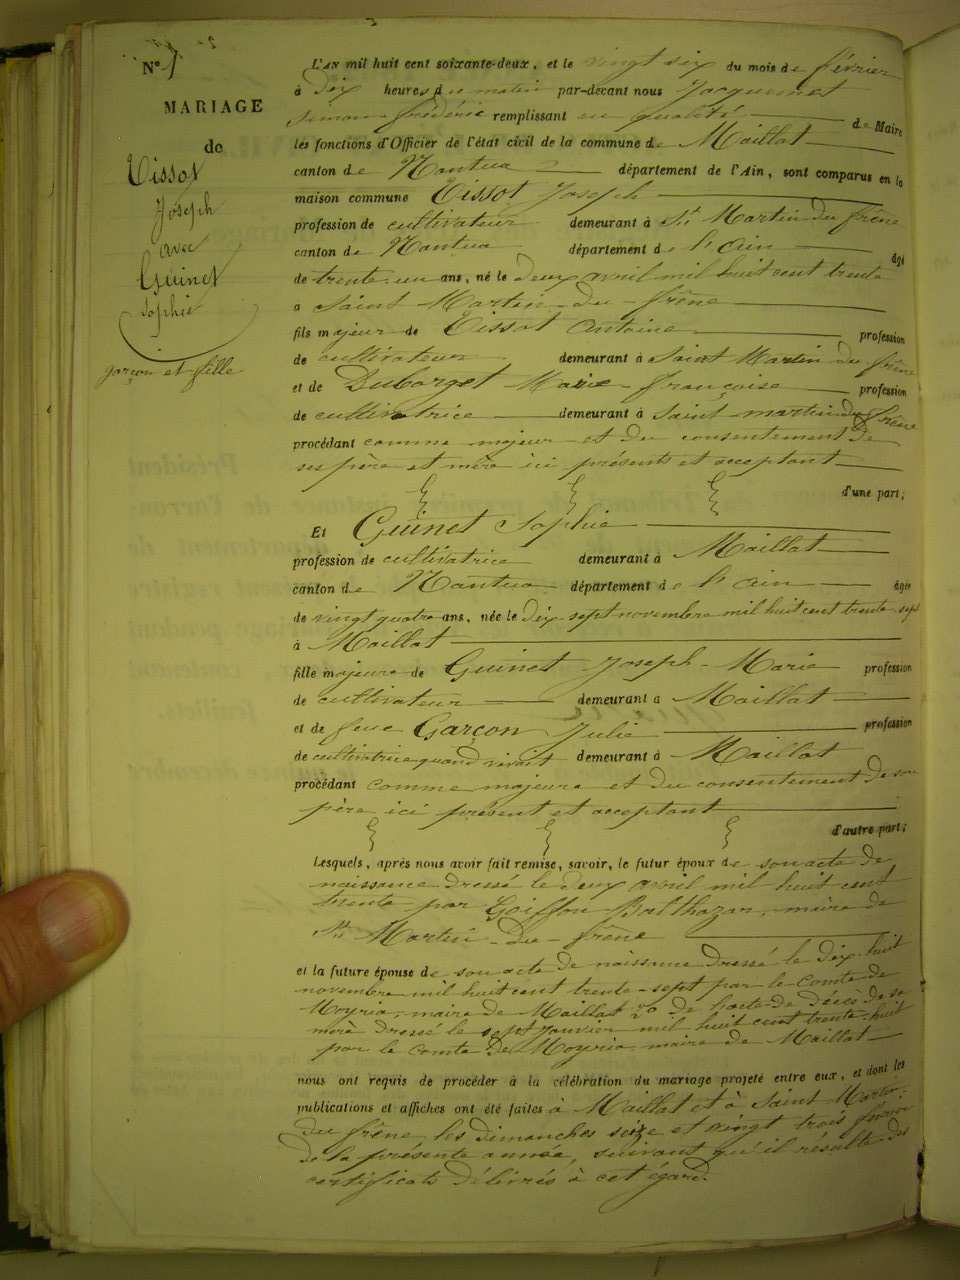 N° 1
MARIAGE
de
Tissot
Joseph
avec
Guinet
Sophie
garçon et fille
L'AN mil huit cent soixante-deux, et le vingt six du mois de février
à dix heures du matin par-devant nous Jacquemet
Simon Frédéric remplissant en qualité de Maire
les fonctions d'Officier de l'état civil de la commune de Maillat
canton de Nantua département de l'Ain, sont comparus en la
maison commune Tissot Joseph
profession de cultivateur demeurant à St Martin du frêne
canton de Nantua département de l'ain âgé
de trente un ans, né le deux avril mil huit cent trente
a Saint Martin-du-frêne
fils majeur de Tissot Antoine profession
de cultivateur demeurant à Saint Martin du frêne
et de Duborget Marie françoise profession
de cultivatrice demeurant à Saint martin du frêne
procédant comme majeur et du consentement de
ses père et mère ici présents et acceptant
d'une part;
Et Guinet Sophie
profession de cultivatrice demeurant à Maillat
canton de Nantua département de l'ain âgée
de vingt quatre ans, née le dix sept novembre mil huit cent trente sept
à Maillat
fille majeure de Guinet Joseph-Marie profession
de cultivateur demeurant a Maillat
et de feue Garçon Julie profession
de cultivatrice quand vivait demeurant à Maillat
procédant comme majeure et du consentement de son
père ici présent et acceptant
d'autre part;
Lesquels, après nous avoir fait remise, savoir, le futur époux de son acte de
naissance dressé le deux avril mil huit cent
trente par Goiffon Balthazar, maire de
St Martin-du-frêne
et la future épouse de son acte de naissance dressé le dix-huit
novembre mil huit cent trente-sept par le Comte de
Moyria, maire de Maillat 2° de l'acte de décès de sa
mère dressé le sept Janvier mil huit cent trente-huit
par le comte de Moyria maire de Maillat
nous ont requis de procéder à la célébration du mariage projeté entre eux, et dont les
publications et affiches ont été faites à Maillat et à Saint Martin
du frêne, les dimanches seize et vingt trois février
de la présente année, suivant qu'il résulte des
certificats délivrés à cet égard.